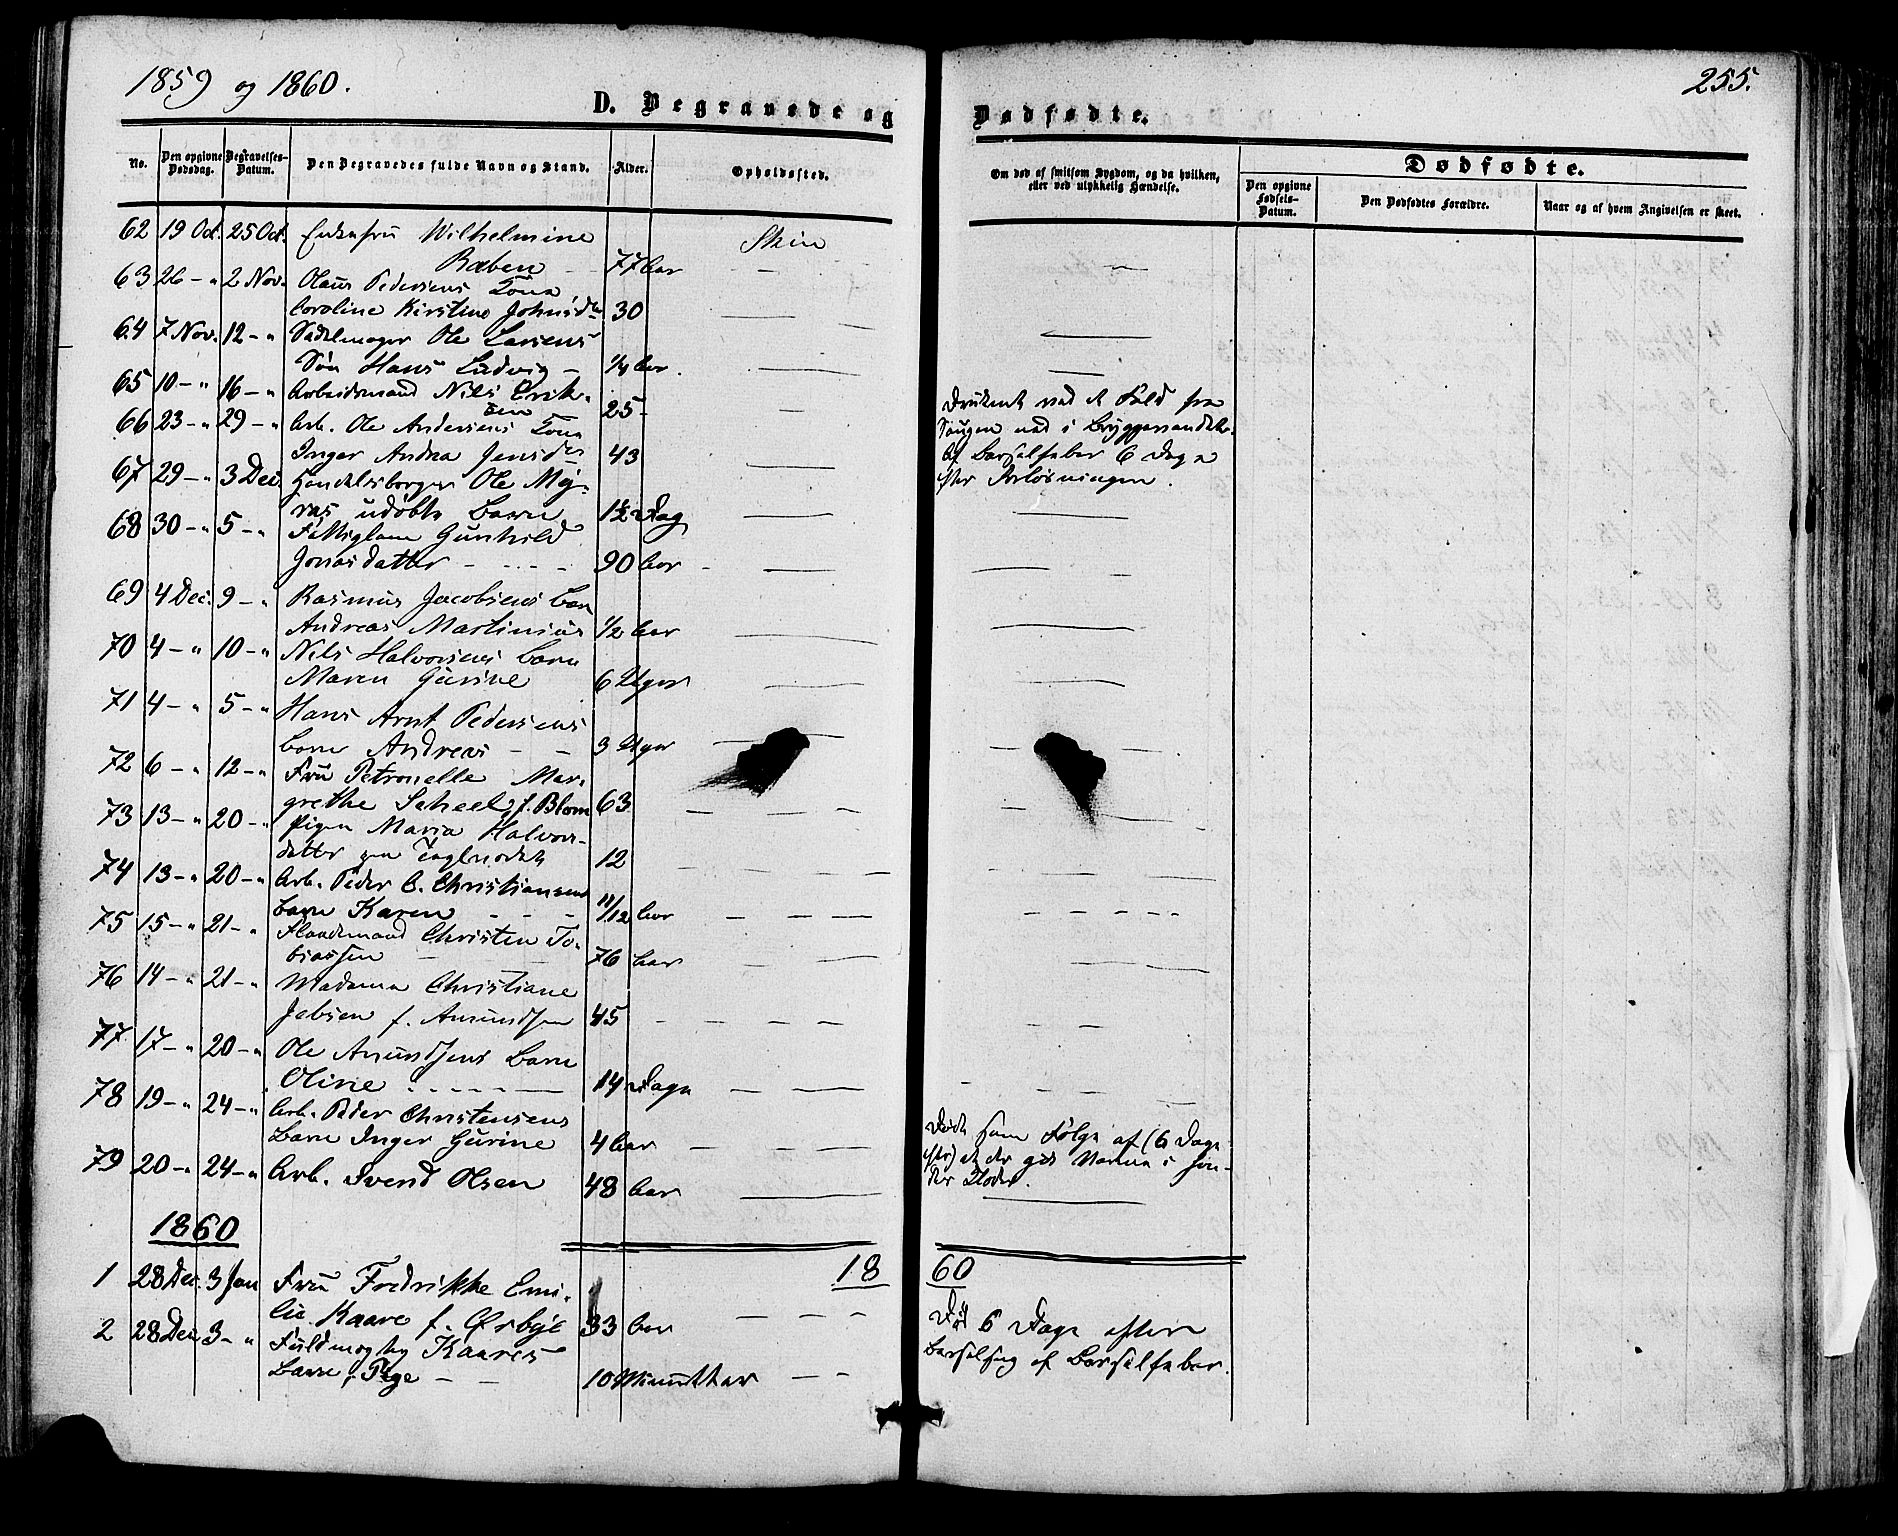 1859 og 1860.
255.
D. Begravede og
Dødfødte.
No.
Den opgivne Dødsdag.
Begravelses-Datum.
Den Begravedes fulde Navn og Stand.
Alder.
Opholdssted.
Om død af smitsom Sygdom, og da hvilken, eller ved ulykkelig Hændelse.
Dødfødte.
Den opgivne Fødsels-Datum.
Den Dødfødtes Forældre.
Naar og af hvem Angivelsen er skeet.
62 19 Oct. 25 Oct. Enkefru Wilhelmine
Raben - 77 Aar Skien
63 26 - " 2 Nov. Olaus Pedersens Kone
Caroline Kirstine Johnsdr 30
64 7 Nov. 12 - " Sadelmager Ole Larsens
Søn Hans Ludvig - 1/4 Aar.
65 10 - " 16 - " Arbeidsmand Nils Erik-
sen 25 -
Druknet ved et Fald fra
66 23 - " 29 - " Arb. Ole Andersens Kone
Inger Andrea Jensdr 43
Af Barselfeber 6 Dage
efter Forløsningen.
67 29 - " 3 Dec. Handelsborger Ole
udøbte Barn 1 1/2 Dag
68 30 - " 5 - " Fattiglem Gunhild
Jonasdatter - - - - 90 Aar
69 4 Dec. 9 - " Rasmus Jacobsens Barn
Andreas Martinius 1/2 Aar
70 4 - " 10 - " Nils Halvorsens Barn
Maren Gurine 6 Uger
71 4 - " 5 - " Hans Arnt Pedersens
Barn Andreas - - 3 Uger
72 6 - " 12 - " Fru Petronelle Mar-
grethe Scheel f. Blom 63
73 13 - " 20 - " Pigen Maria Halvors-
datter 12
74 13 - " 20 - " Arb. Peder C. Christiansens
Barn Karen - - - 11/12 Aar
75 15 - " 21 - " Christen To-
biassen - - 76 Aar
76 14 - " 21 - " Madame Christiane
Jebsen f. Amundsen 45
77 17 - " 20 - " Ole Amundsens Barn
Oline - - - - 14 Dage
78 19 - " 24 - " Arb. Peder Christensens
Barn Inger Gurine 4 Aar
Døde som Følge af (6 Dage
79 20 - " 24 - " Arb. Svend Olsen 48 Aar
1860
18 60
1 28 Dec. 3 Jan Fru Fredrikke Emi-
lie Kaare f. Ørbye 33 Aar
Død 6 Dage efter
Barselseng af Barselfeber.
2 28 Dec. 3 - " Fuldmægtig Kaares
Barn, Pige - - 10 Minutter